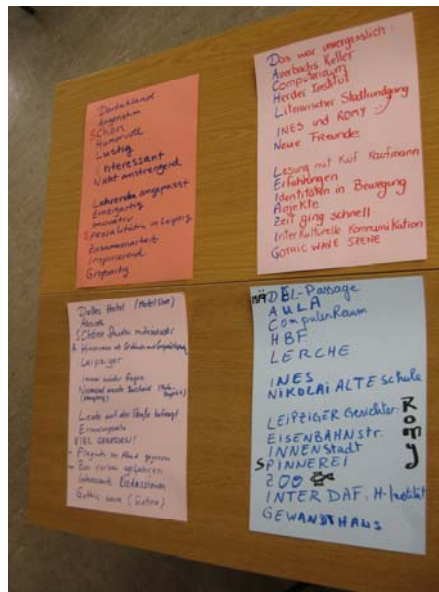 Deutschland
Angenehm
SCHön
Humorvoll
Lustig
Interessant
Nicht anstrengend
Lehrende angepasst
Einzigartig
Innovativ
SPezialitäten in Leipzig
Zusammenarbeit
Inspirierend
Großartig

Das war unvergesslich:
Auerbachs Keller
Computerraum
Herder Institut
Literarischer Stadtrundgang
INES und ROMY :)
Neue Freunde
Lesung mit Küf Kaufmann
Erfahrungen
Identitäten in Bewegung
Projekte
Zeit ging schnell
Interkulturelle Kommunikation
GOTHIC WAVE SZENE

Dolles Hotel (Motel One)
SCHöne Stunden miteinander
Leipziger
Immer wieder Fragen
Niemand wusste Bescheid
Leute auf der Straße befragt
Erinnerungsorte
VIEL GESEHEN!
Zoo vorbei gefahren
Interessante Diskussionen
Gothic wave

MÄDEL-Passage
AULA
ComputerRaum
HBF
LERCHE
INES
NIKOLAI ALTE Schule
LEIPZIGER Gesichter
EISENBAHNstr.
INNENStadt
SPINNEREI
ZOO
INTER DAF. H-Institut
GEWANDTHAUS
Romy